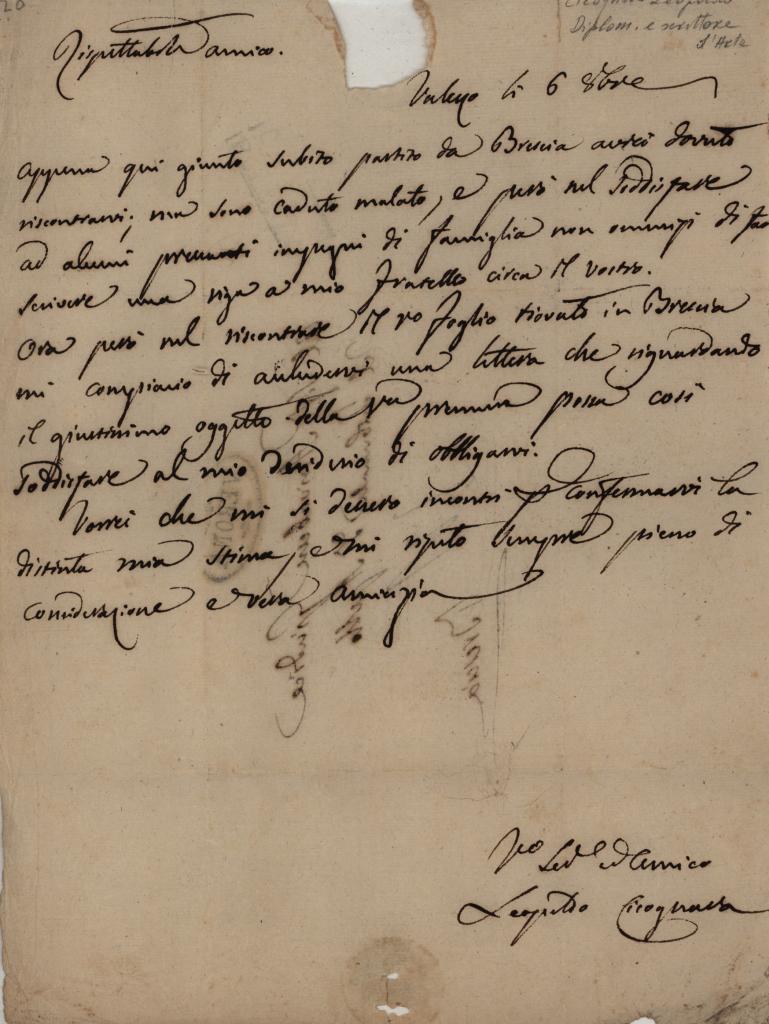 20
Cicognara Leopoldo
Diplom. e scrittore
d'Arte
Rispettabile amico.
li 6 8bre
Appena qui giunto subito partito da Brescia avrei dovuto
riscontrarvi, ma sono caduto malato, e però nel soddisfare
ad alcuni pressanti impegni di famiglia non ommisi di far
scrivere una riga a mio fratello circa il vostro.
Ora però nel riscontrare il vo foglio trovato in Brescia
mi compiacio di acludervi una lettera che riguardando
il giustissimo oggetto della vra premura possa così
soddisfare al mio desiderio di obbligarvi.
Vorrei che mi si dessero incontri p confermarvi la
distinta mia stima, e mi reputo sempre pieno di
considerazione e vera amicizia
Vo
ed Amico
Leopoldo Cicognara